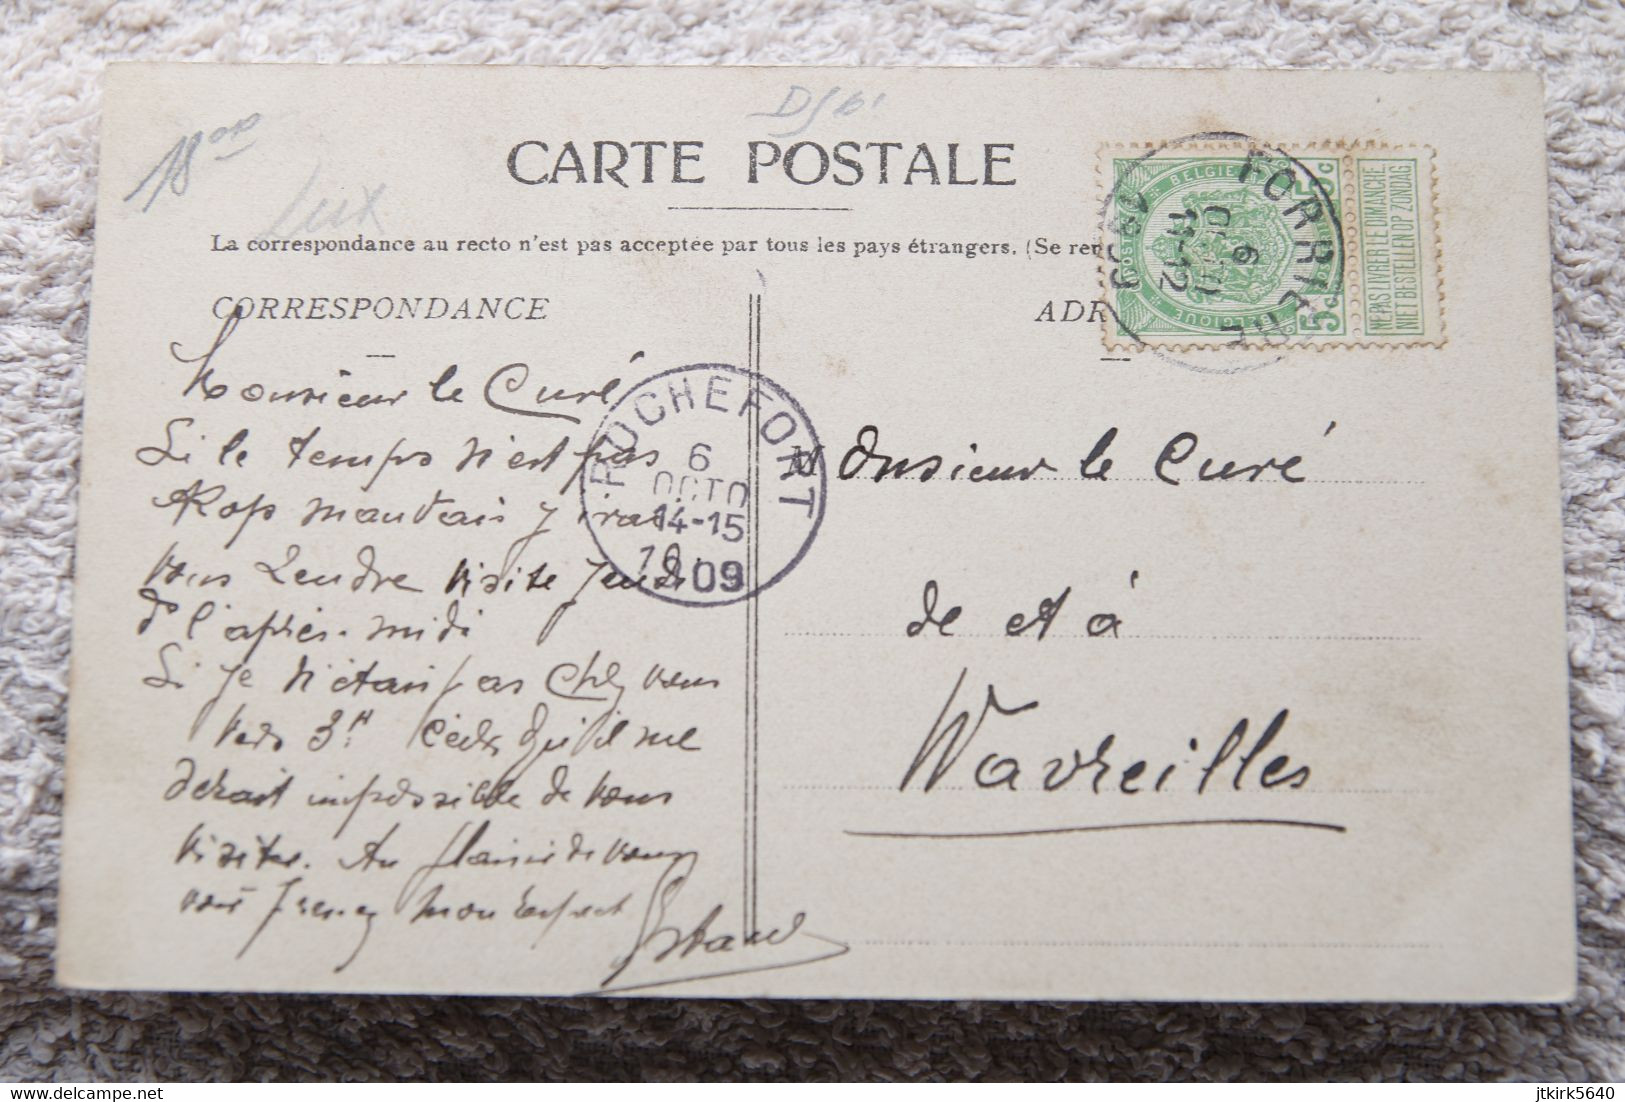 18
Lux
CARTE POSTALE
La correspondance au recto n'est pas acceptée par tous les pays étrangers. (Se ren
CORRESPONDANCE
ADR
Monsieur le Curé
Si le temps n'est pas
trop mauvais j'irai
vous rendre visite jeudi
de l'après-midi
Si je n'étais pas chez vous
vers 3 H c'est qu'il me
serait impossible de vous
visiter. Au plaisir de vous
voir prenez mon respect
Monsieur le Curé
de et à
Wavreilles
ROCHEFORT
6
OCTO
14-15
1909
FORRIÈRES
6
OCTO
11-12
1909
BELGIE
BELGIQUE
POSTES
5c
5c
NE PAS LIVRER LE DIMANCHE
NIET BESTELLEN OP ZONDAG
www.delcampe.net
jtkirk5640